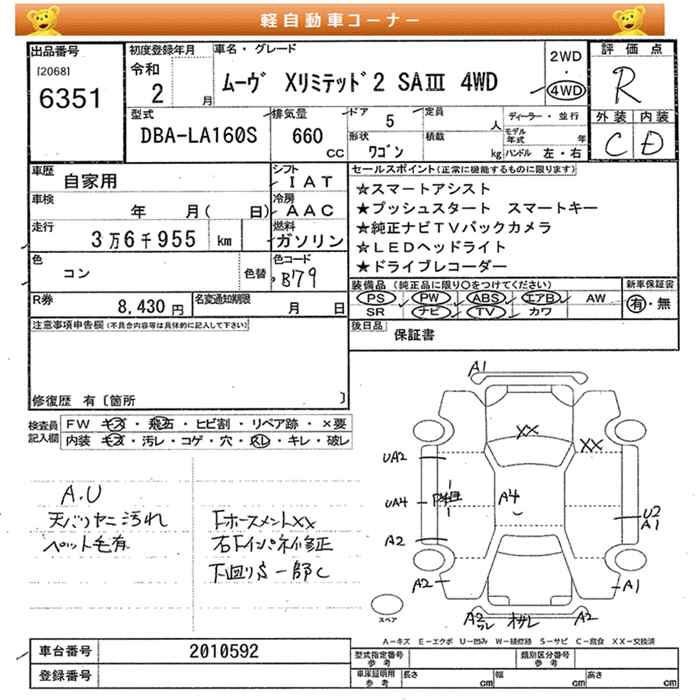 軽自動車コーナー
出品番号
[2068]
6351
初度登録年月
令和
2 月
車名・グレード
ムーヴ Xリミテッド2 SAⅢ 4WD
2WD
・
4WD
評価点
R
外装 内装
C D
型式
DBA-LA160S
排気量
660
CC
ドア
5
形状
ワゴン
定員
人
積載
kg
ディーラー・並行
モデル年式 年
ハンドル 左・右
車歴
自家用
車検
年 月( 日)
走行
3万6千955 km
色
コン
色替
シフト
IAT
冷房
AAC
燃料
ガソリン
色コード
B79
R券
8,430 円
名変通知期限
月 日
セールスポイント(正常に機能するものに限ります)
☆スマートアシスト
★プッシュスタート スマートキー
★純正ナビTVバックカメラ
☆LEDヘッドライト
★ドライブレコーダー
装備品 (純正品に限り○をつけてください)
PS PW ABS エアB AW
SR ナビ TV カワ
新車保証書
有・無
後日品
保証書
注意事項申告欄(不具合内容等は具体的に記入して下さい)
修復歴 有〔箇所 〕
検査員記入欄
FW キズ・飛石・ヒビ割・リペア跡・×要
内装 キズ・汚レ・コゲ・穴・スレ・キレ・破レ
A.U
天バリヤニ汚れ
ペット毛有
下回りS一部C
A1
XX
XX
UA2
UA4
A2
A4
U2
A1
A2
A1
A2
A2
スペア
A-キズ E-エクボ U-凹み W-補修跡 S-サビ C-腐食 XX-交換済
車台番号
2010592
登録番号
型式指定番号
参考
類別区分番号
参考
車庫証明用
参考
長さ cm
幅 cm
高さ cm